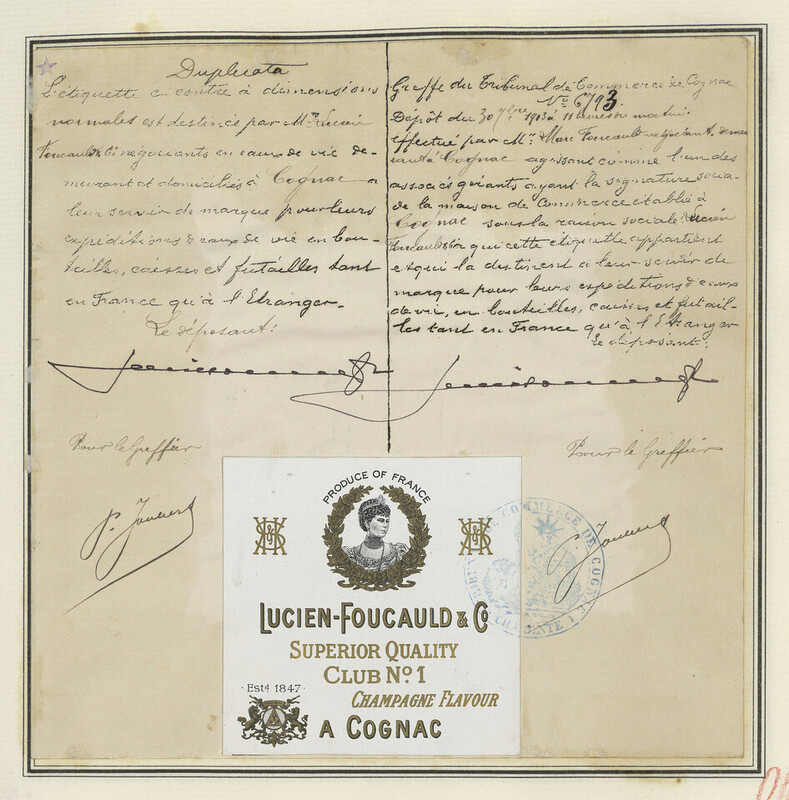 Duplicata
L'étiquette ci contre à dimensions
normales est destinée par Mrs Lucien
Foucauld & Cie négociants en eaux de vie de-
meurant et domiciliés à Cognac a
leur servir de marque pour leurs
expéditions d'eaux de vie en bou-
teilles, caisses et futailles tant
en France qu'à l'Etranger.
Le déposant:
Pour le Greffier
Greffe du Tribunal de Commerce de Cognac
No 6793.
Dépôt du 30 1903 à 11 heures du matin
effectué par Mr Marc Foucauld négociant demeu
rant à Cognac agissant comme l'un des
associés gérants ayant la signature socia-
le de la maison de Commerce établie à
Cognac sous la raison sociale: Lucien
Foucauld & Cie qui cette étiquette appartient
et qui la destinent a leur servir de
marque pour leurs expéditions d'eaux
de vie, en bouteilles, caisses et futail-
les tant en France qu'à l'Etranger
Le déposant:
Pour le Greffier
PRODUCE OF FRANCE
LUCIEN-FOUCAULD & Co
SUPERIOR QUALITY
CLUB No 1
CHAMPAGNE FLAVOUR
Estd 1847
A COGNAC
COMMERCE DE COGNAC